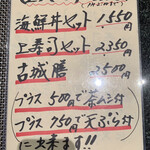 海鮮丼セット 1,550円
上寿司セット 2,350
古城膳 3,500円
プラス 500円で茶ムシ付
プラス 750円で天ぷら付
に出来ます!!